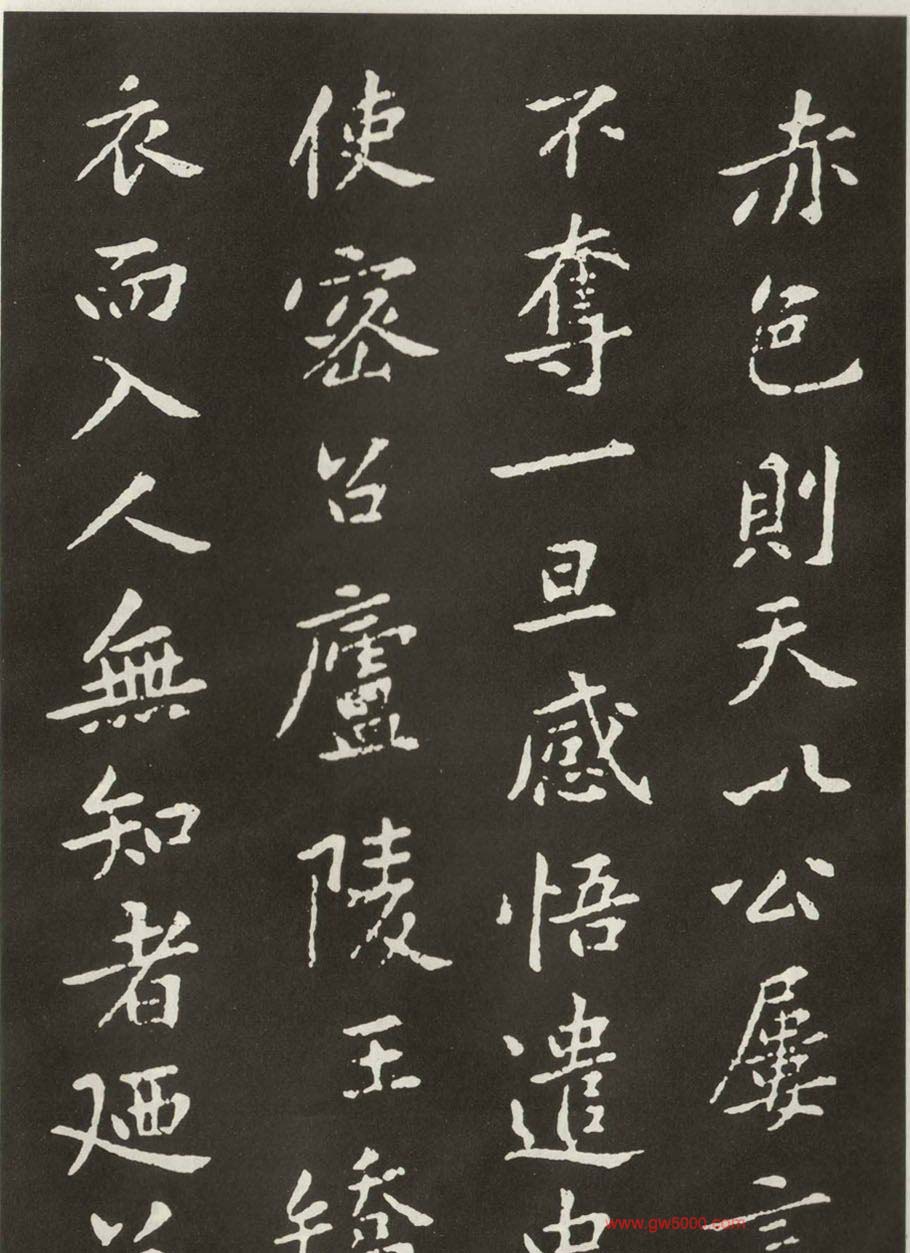 赤色則天以公屢言
不奪一旦感悟遣中
使密召廬陵王矯
衣而入人無知者廼召
www.gw5000.com